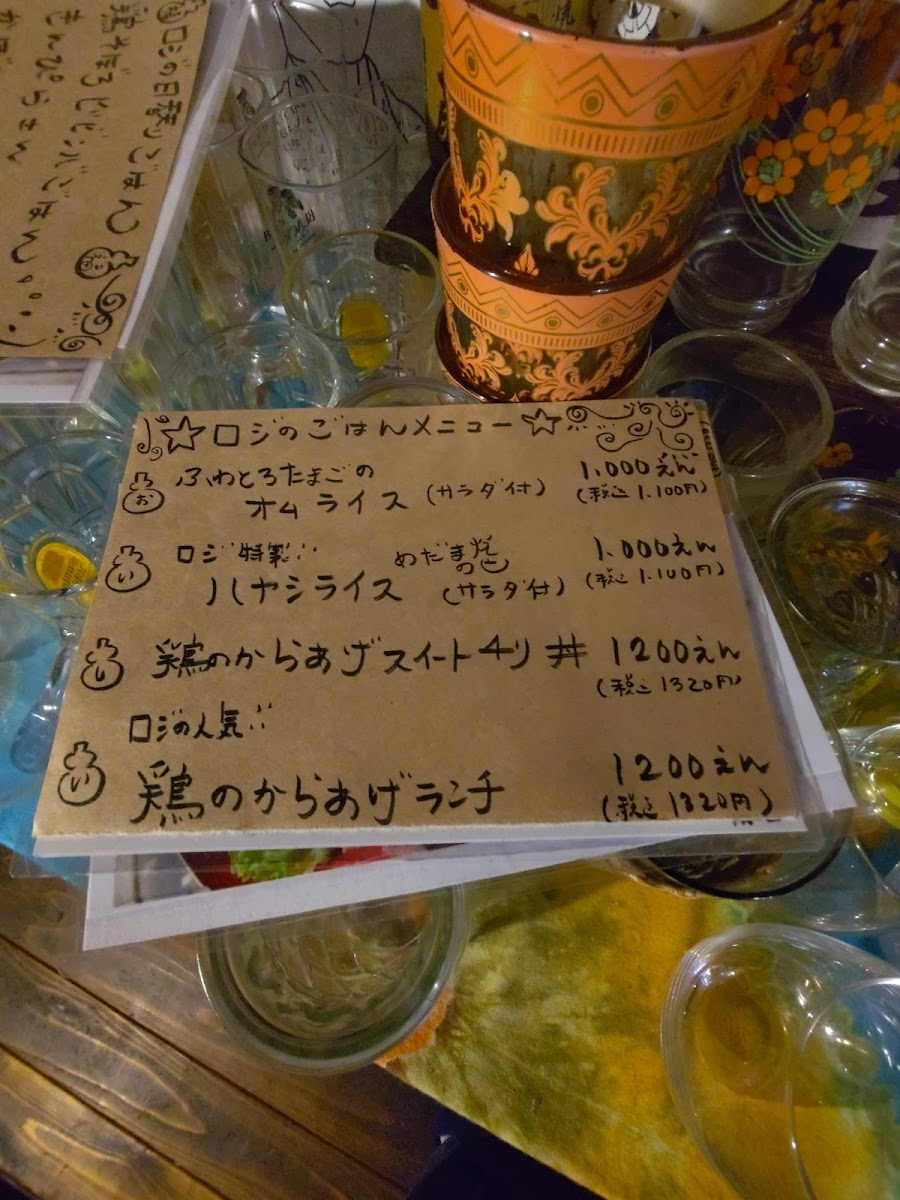 ロジの日替りごはん
鶏そぼろビビンバごはん。。。
きんぴらさん
☆ロジのごはんメニュー☆
お ふわとろたまごの
オムライス (サラダ付) 1.000えん
(税込 1.100円)
い ロジ特製!! めだま焼のせ
ハヤシライス (サラダ付) 1.000えん
(税込 1.100円)
し 鶏のからあげスイートチリ丼 1200えん
(税込 1320円)
ロジの人気!!
い 鶏のからあげランチ 1200えん
(税込 1320円)